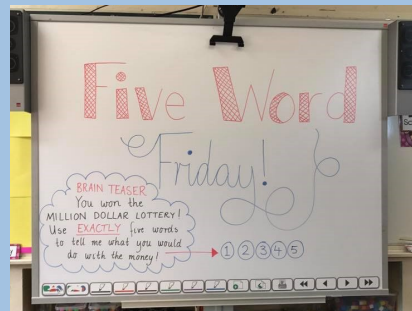 Five Word
Friday!
BRAIN TEASER
You won the
MILLION DOLLAR LOTTERY!
Use EXACTLY five words
to tell me what you would
do with the money!
1 2 3 4 5